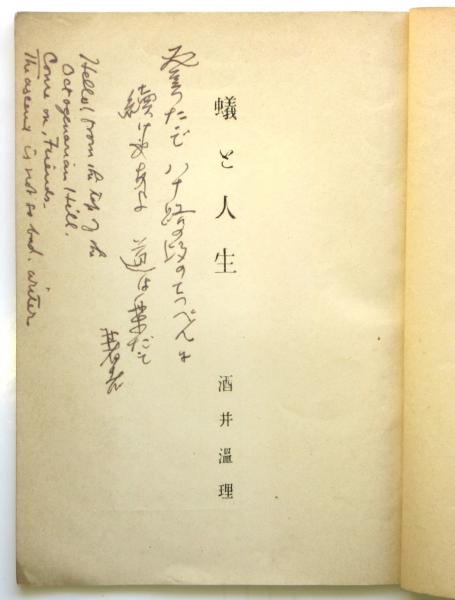 蟻と人生
酒井溫理
ったで 八十路の段のてっぺんに
續け 道は楽だで
Hello! from the top of the
Octogenarian Hill.
Come on, Friends.
The ascent is not so bad. writer